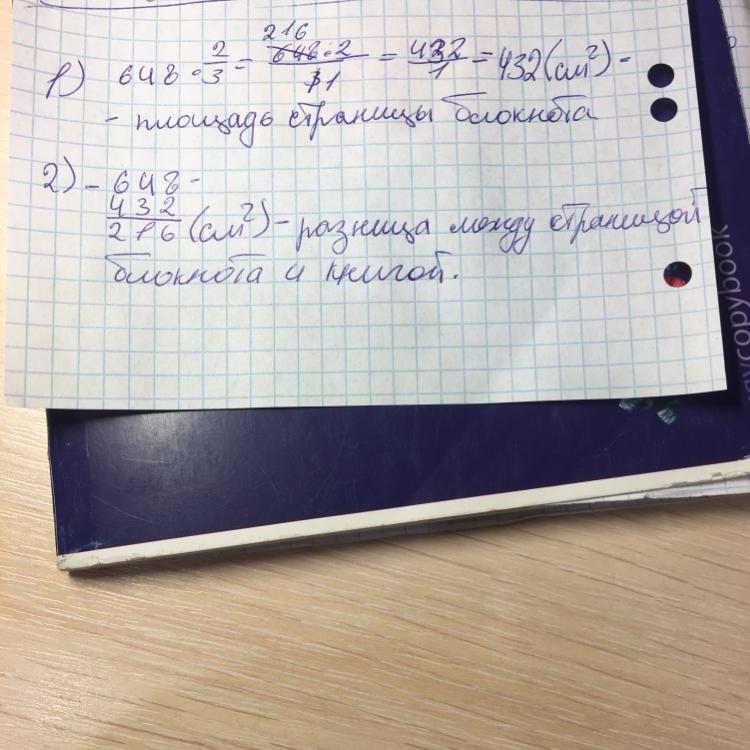 1) 648 · 2/3 = 216 648 · 2 / 3 1 = 432/1 = 432 (см²) -
- площадь страницы блокнота
2) - 648 -
432
216 (см²) - разница между страницой
блокнота и книгой.
copybook